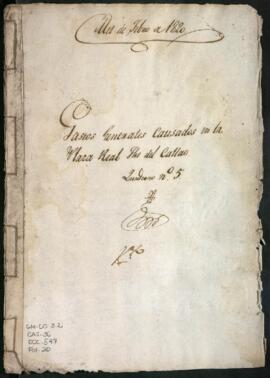 Mes de Febro de 1820
Gastos Generales Causados en la
Plaza Real Fpe del Callao
Quaderno nº 5
GM-CO 32
CAJ-36
DOC-547
FOL-20